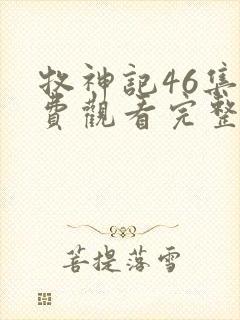 牧神記46集
費觀看完整
菩提落雪